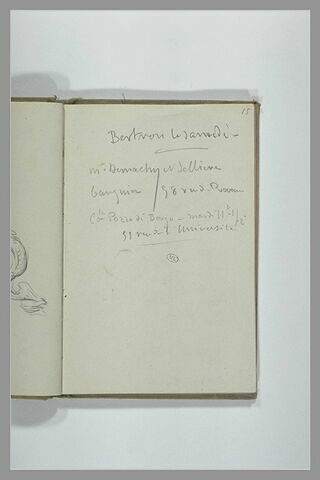 15
Bertron le samedi -
mr Demachy et Sellière
banquier / 58 rue de Provence
Cte Pozzo di Borgo - mardi 11h 1/2
51 rue de l'Université